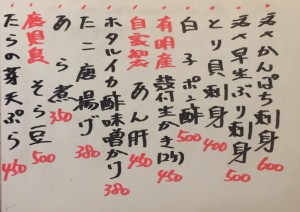 活〆かんぱち刺身 600
活〆早生ぶり刺身 500
とり貝刺身 400
白子ポン酢 500
有明産殻付生かき(2ヶ) 450
自家製あん肝 450
ホタルイカ酢味噌かけ 380
たこ唐揚げ 380
あら煮 350
鹿児島そら豆 500
たらの芽天ぷら 450